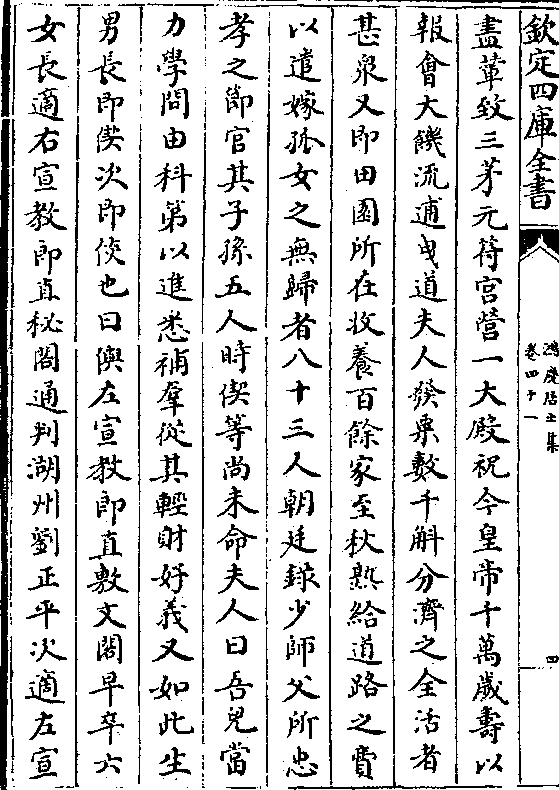 欽定四庫全書
鴻慶居士集
卷四十一
四
盡葷致三茅元符宮營一大殿祝今皇帝千萬歲壽以
報會大饑流逋曳道夫人發粟數千斛分濟之全活者
甚衆又即田園所在收養百餘家至秋熟給道路之費
以遣嫁孤女之無歸者八十三人朝廷録少師父所忠
孝之節官其子孫五人時偰等尚未命夫人曰吾兒當
力學問由科第以進悉補羣從其輕財好義又如此生
男長即偰次即侅也曰㒜左宣教郎直敷文閣早卒六
女長適右宣教郎直秘閣通判湖州劉正平次適左宣